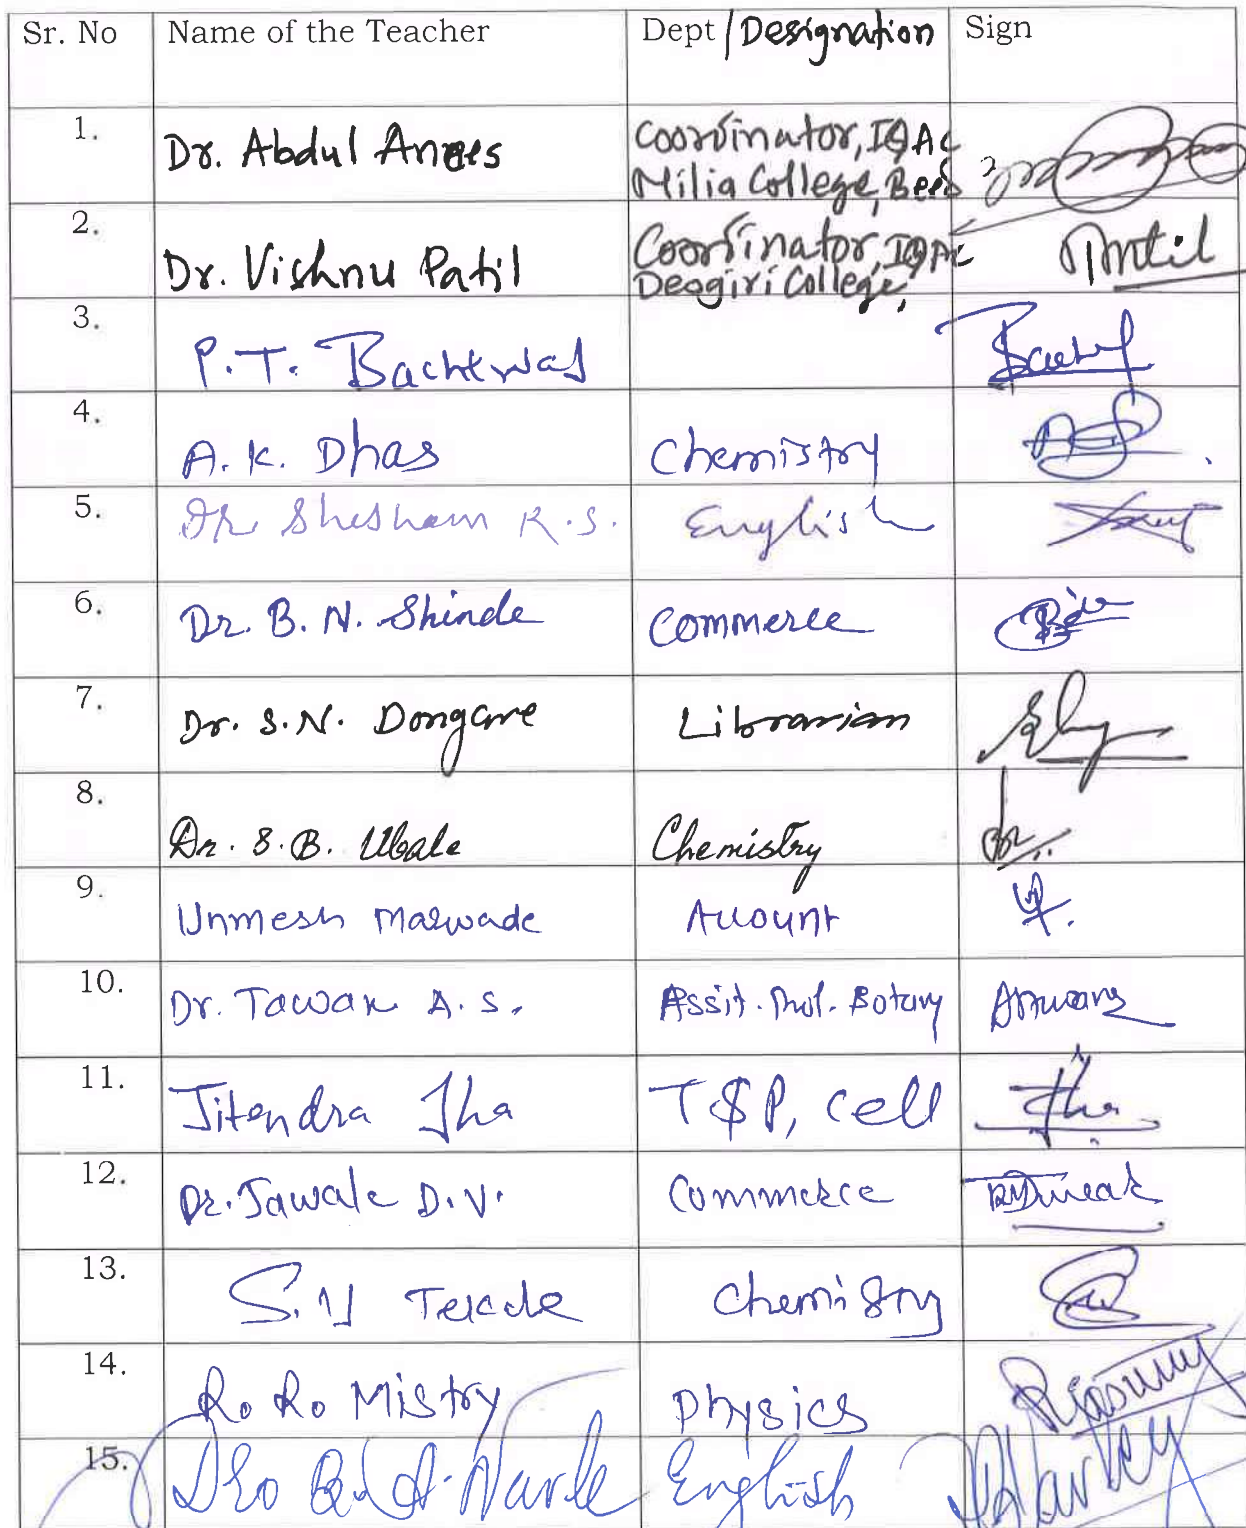 Sr. No Name of the Teacher Dept / Designation Sign
1. Dr. Abdul Anees Coordinator, IQAC
Milia College, Beed
2. Dr. Vishnu Patil Coordinator, IQAC
Deogiri College,
3. P.T.
4. A. K. Dhas Chemistry
5. Dr Shesham R.S. English
6. Dr. B. N. Shinde Commerce
7. Dr. S.N. Dongare Librarian
8. Dr. S. B. Ubale Chemistry
9. Unmesh Marwade Account
10. Dr. Tawar A. S. Assit. Prof. Botany
11. Jitendra Jha T&P, Cell
12. Dr. Jawale D.V. Commerce
13. Chemistry
14. Mistry Physics
15. English